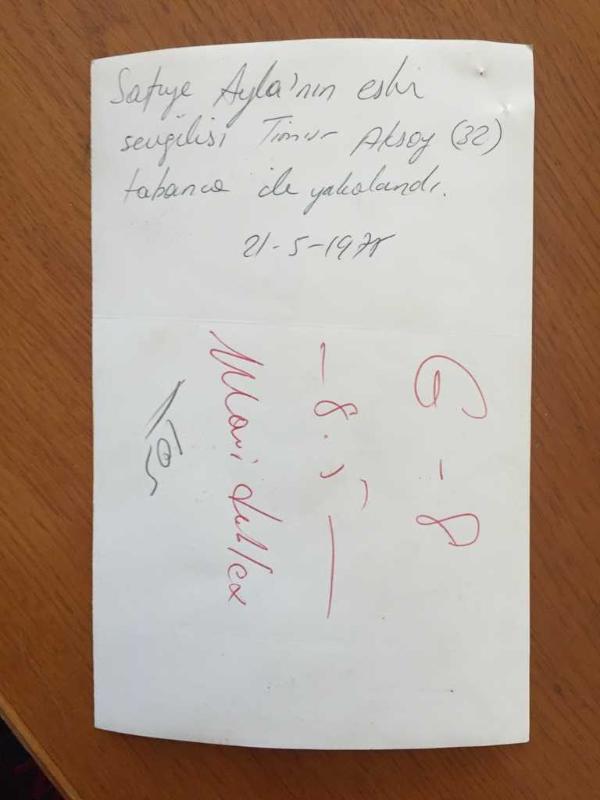 Safiye Ayla'nın eski
sevgilisi Timur Aksoy (32)
tabanca ile yakalandı.
21-5-197
G-8
- 8.5 -
Mavi